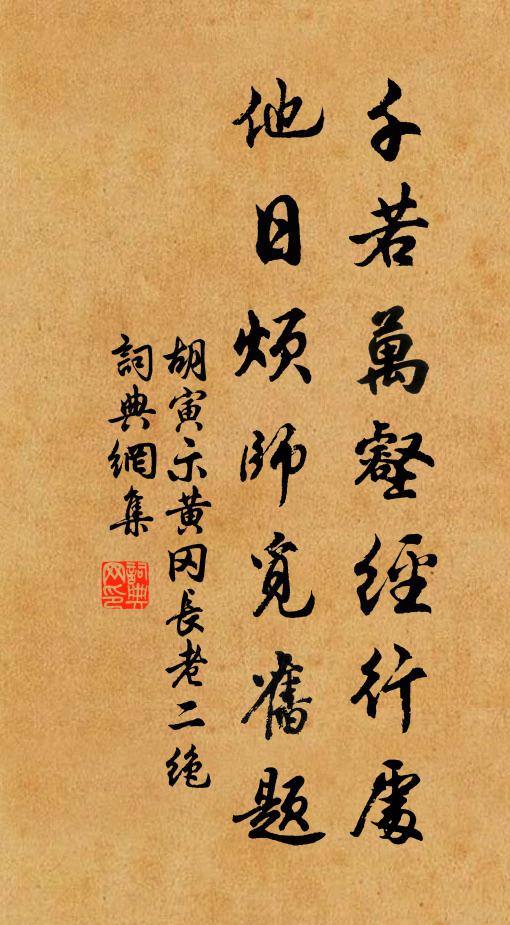 千若萬壑經行處
他日煩師覓舊題
胡寅示黄冈長老二绝
詞典網集
詞典網印